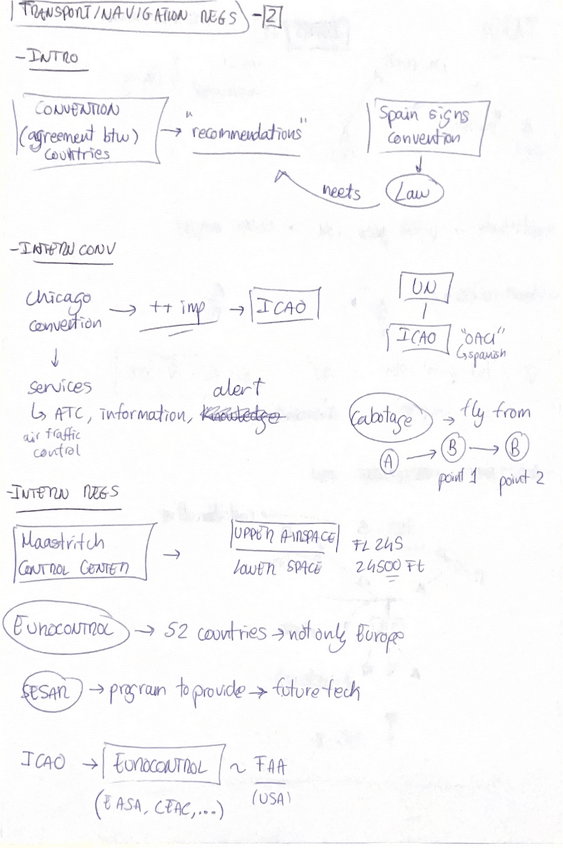 TRANSPORT/NAVIGATION REGS - 2
- INTRO
CONVENTION
(agreement btw)
countries
→ "recommendations"
Spain signs
convention
↓
Law
neets
- INTERN CONV
Chicago
convention
→ ++ imp → ICAO
UN
ICAO "OACI"
↳ spanish
↓
services
alert
↳ ATC, information, knowledge
air traffic
control
Cabotage → fly from
A → B → B
point 1 point 2
- INTERN REGS
Maastritch
CONTROL CENTER
→
UPPER AIRSPACE FL 245
LOWER SPACE 24500 Ft
EUROCONTROL → 52 countries → not only Europe
SESAR → program to provide → future tech
ICAO → EUROCONTROL ~ FAA
(EASA, CEAC, ...) (USA)